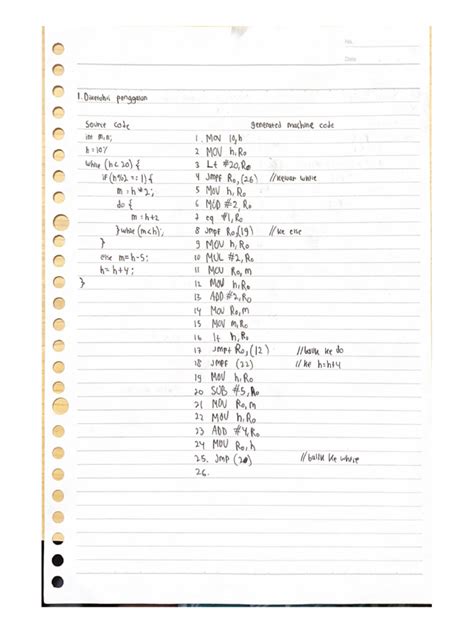 No.
Date
1. Diketahui penggalan
Source code generated machine code
int m,n; 1. MOV 10,h
h=10; 2 MOV h,R0
while (h<20) { 3 Lt #20,R0
if(h%2 == 1) { 4 Jmpf R0,(26) //keluar while
m = h*2; 5 MOV h,R0
do { 6 MOD #2,R0
m = h+2 7 eq #1,R0
}while (m<h); 8 Jmpf R0,(19) //ke else
} 9 MOV h,R0
else m=h-5; 10 MUL #2,R0
h= h+4; 11 MOV R0,m
} 12 MOV h,R0
13 ADD #2,R0
14 MOV R0,m
15 MOV m,R0
16 lt h,R0
17 Jmpt R0,(12) //balik ke do
18 Jmpf (22) //ke h=h+4
19 MOV h,R0
20 SUB #5,R0
21 MOV R0,m
22 MOV h,R0
23 ADD #4,R0
24 MOV R0,h
25. Jmp (2) //balik ke while
26.